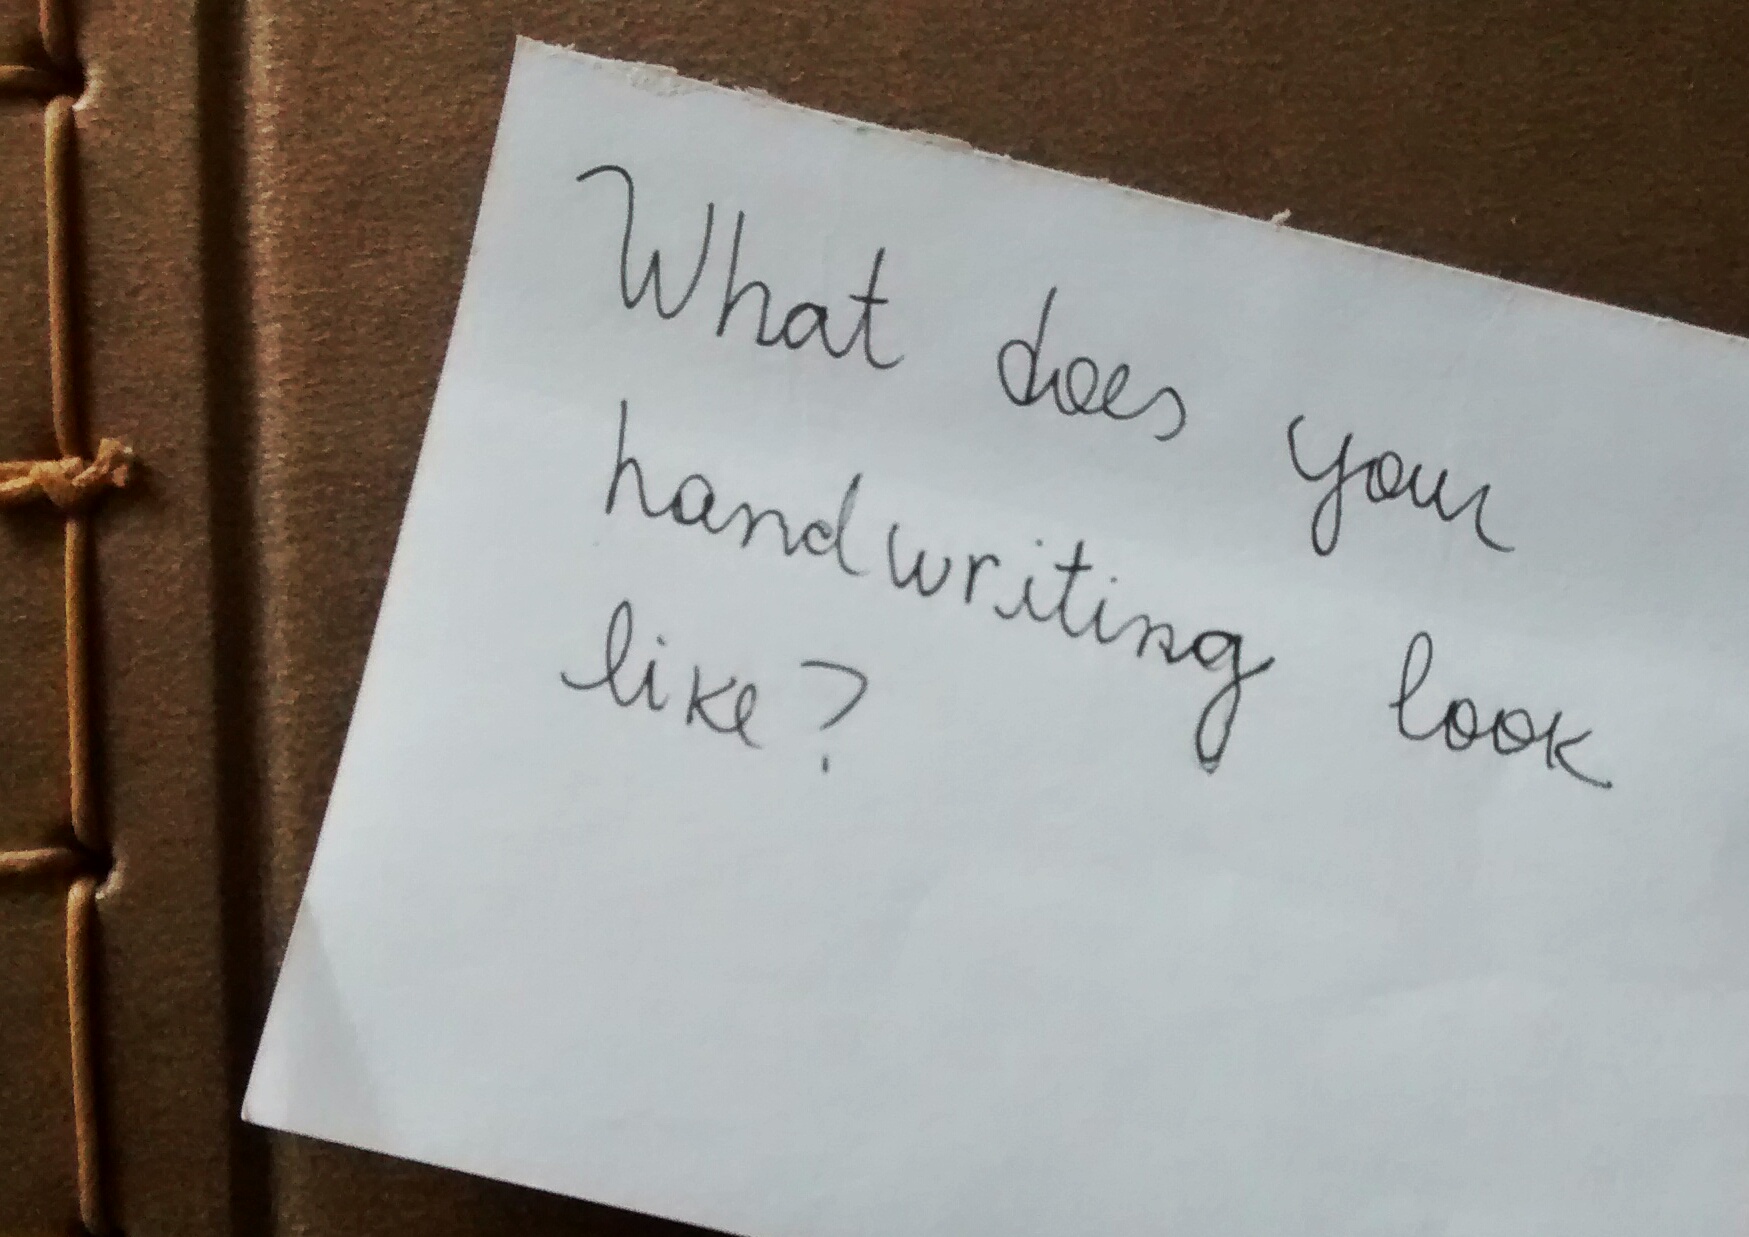 What does your
handwriting look
like?